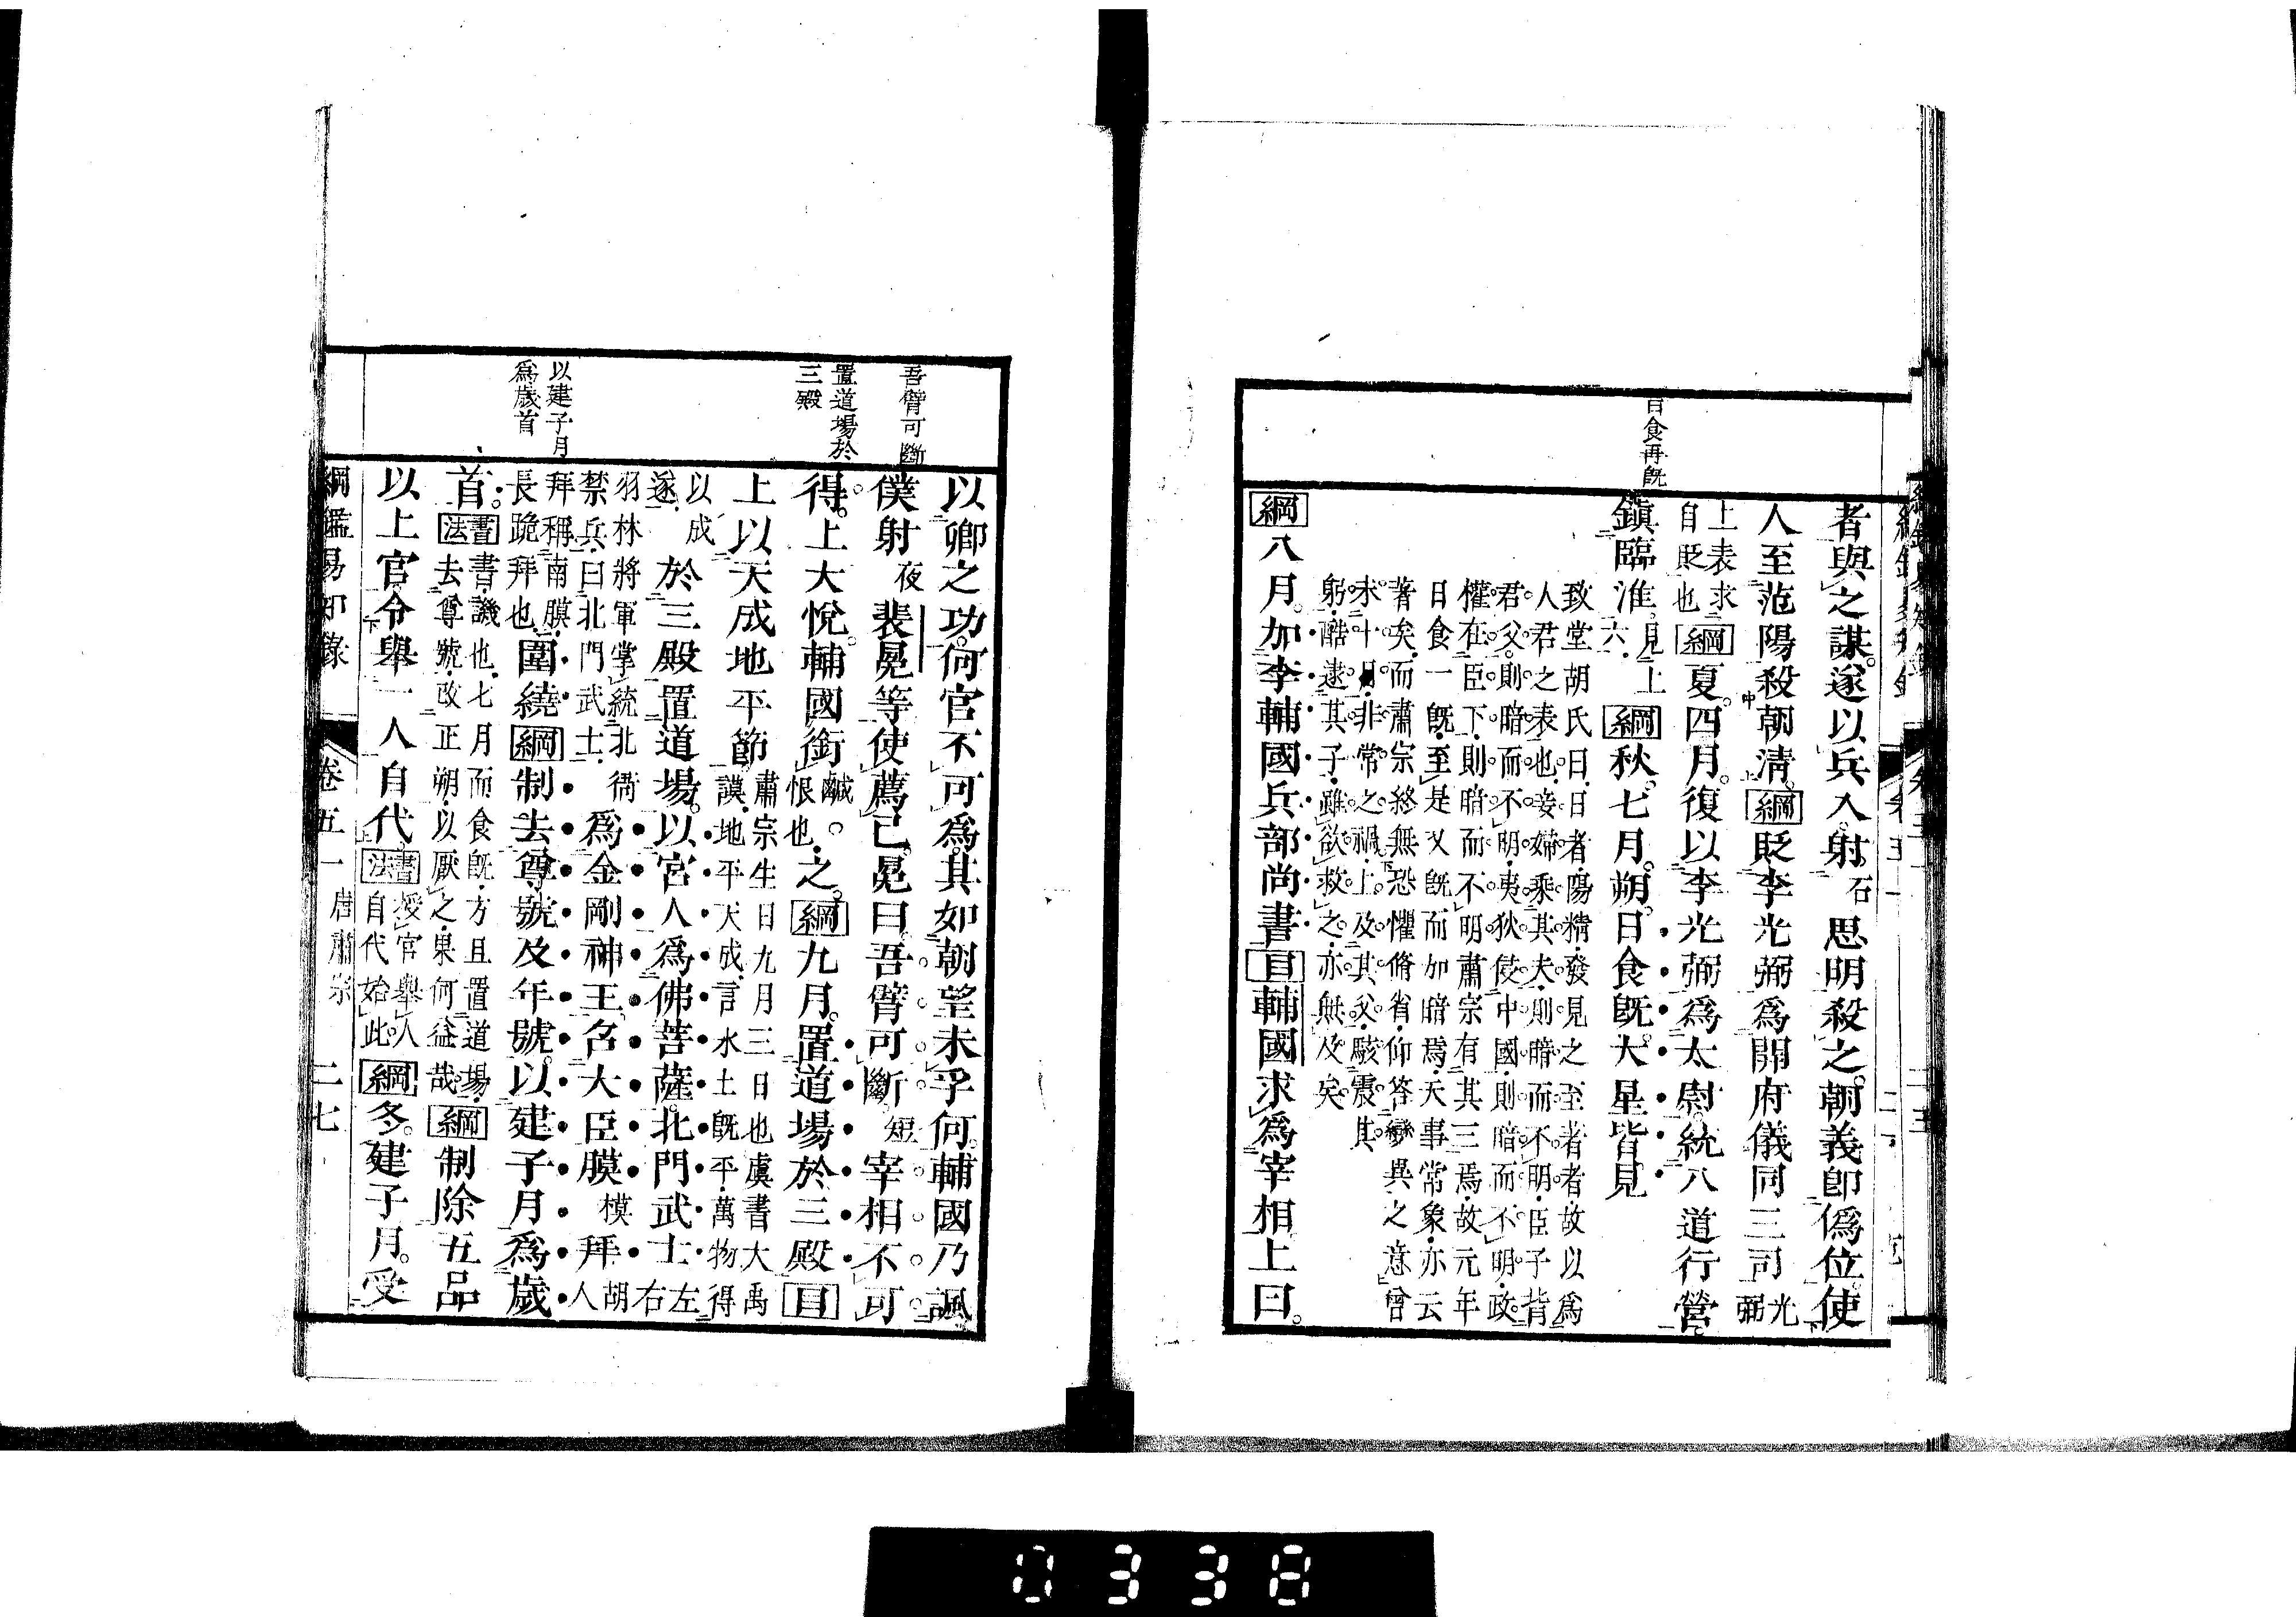 日食再旣
者與之謀遂以兵入射石思明殺之朝義卽僞位使
人至范陽殺朝淸綱貶李光弼爲開府儀同三司光弼
上表求自貶也綱夏四月復以李光弼爲太尉統八道行營
鎭臨淮見上六綱秋七月朔日食旣大星皆見
致堂胡氏曰日者陽精發見之至著者故以爲
人君之表也妾婦乘其夫則暗而不明臣子背
君父則暗而不明夷狄侵中國則暗而不明政
權在臣下則暗而不明肅宗有其三焉故元年
日食一旣至是又旣而加暗焉天事常象亦云
著矣而肅宗終無恐懼脩省仰答變異之意曾
未十月非常之禍上及其父駭震其
躬酷逮其子雖欲救之亦無及矣
綱八月加李輔國兵部尚書目輔國求爲宰相上曰
吾臂可斷
置道場於
三殿
以建子月
爲歲首
以卿之功何官不可爲其如朝望未孚何輔國乃諷
僕射夜裴冕等使薦己冕曰吾臂可斷短宰相不可
得上大悅輔國銜鹹恨也之綱九月置道場於三殿目
上以天成地平節肅宗生日九月三日也虞書大禹謨地平天成言水土旣平萬物得
以成遂於三殿置道場以宮人爲佛菩薩北門武士左右
羽林將軍掌統北衙禁兵曰北門武士爲金剛神王召大臣膜模拜胡人
拜稱南膜長跪拜也圍繞綱制去尊號及年號以建子月爲歲
首書法書譏也七月而食旣方且置道場去尊號改正朔以厭之果何益哉綱制除五品
以上官令舉一人自代書法授官舉人自代始此綱冬建子月受
綱鑑易知錄 卷五一 唐肅宗 二七
0338